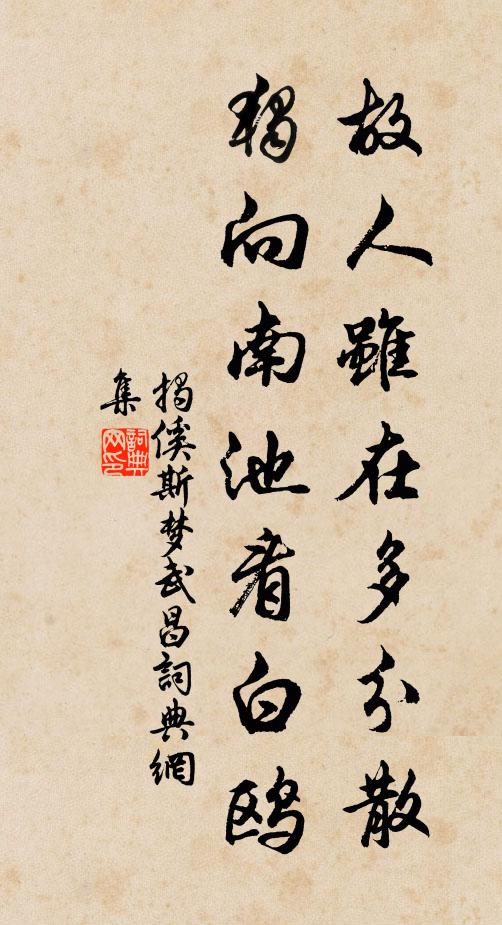 故人雖在多分散
獨向南池看白鸥
揭傒斯梦武昌詞典網
集
詞典網印